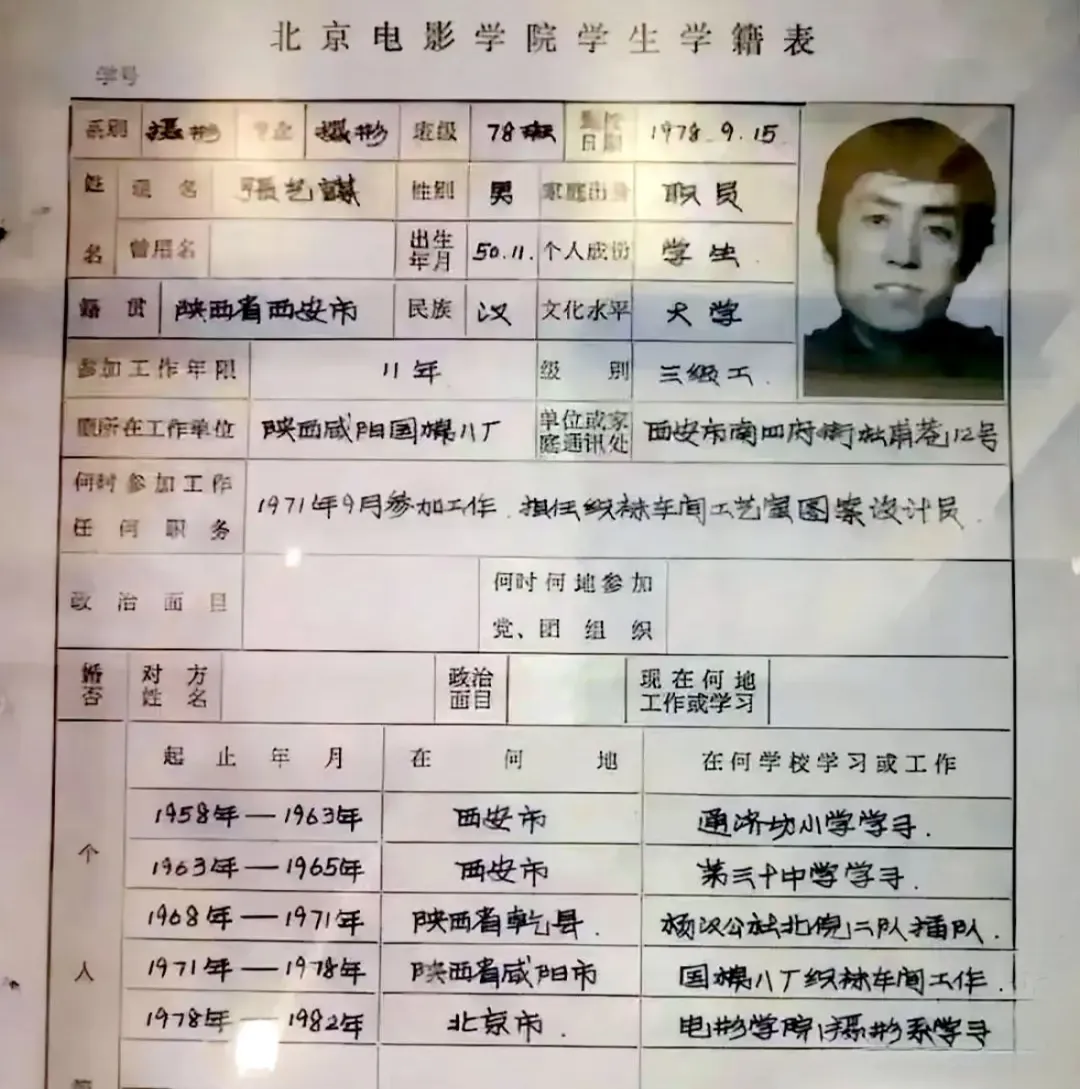 北京电影学院学生学籍表
学号
系别 摄影 专业 摄影 班级 78班 到校日期 1978.9.15
姓名 现名 張艺謀 性别 男 家庭出身 职员
曾用名 出生年月 50.11. 个人成份 学生
籍贯 陕西省西安市 民族 汉 文化水平 大学
参加工作年限 11年 级别 三级工.
原所在工作单位 陕西咸阳国棉八厂 单位或家庭通讯处 西安市南四府街杜甫巷12号
何时参加工作任何职务 1971年9月参加工作.担任织袜车间工艺室图案设计员.
政治面目 何时何地参加党、团组织
婚否 对方姓名 政治面目 现在何地工作或学习
个人
起止年月 在何地 在何学校学习或工作
1958年—1963年 西安市 通济坊小学学习.
1963年—1965年 西安市 第三十中学学习.
1968年—1971年 陕西省乾县. 杨汉公社北倪二队插队.
1971年—1978年 陕西省咸阳市 国棉八厂织袜车间工作.
1978年—1982年 北京市. 电影学院摄影系学习